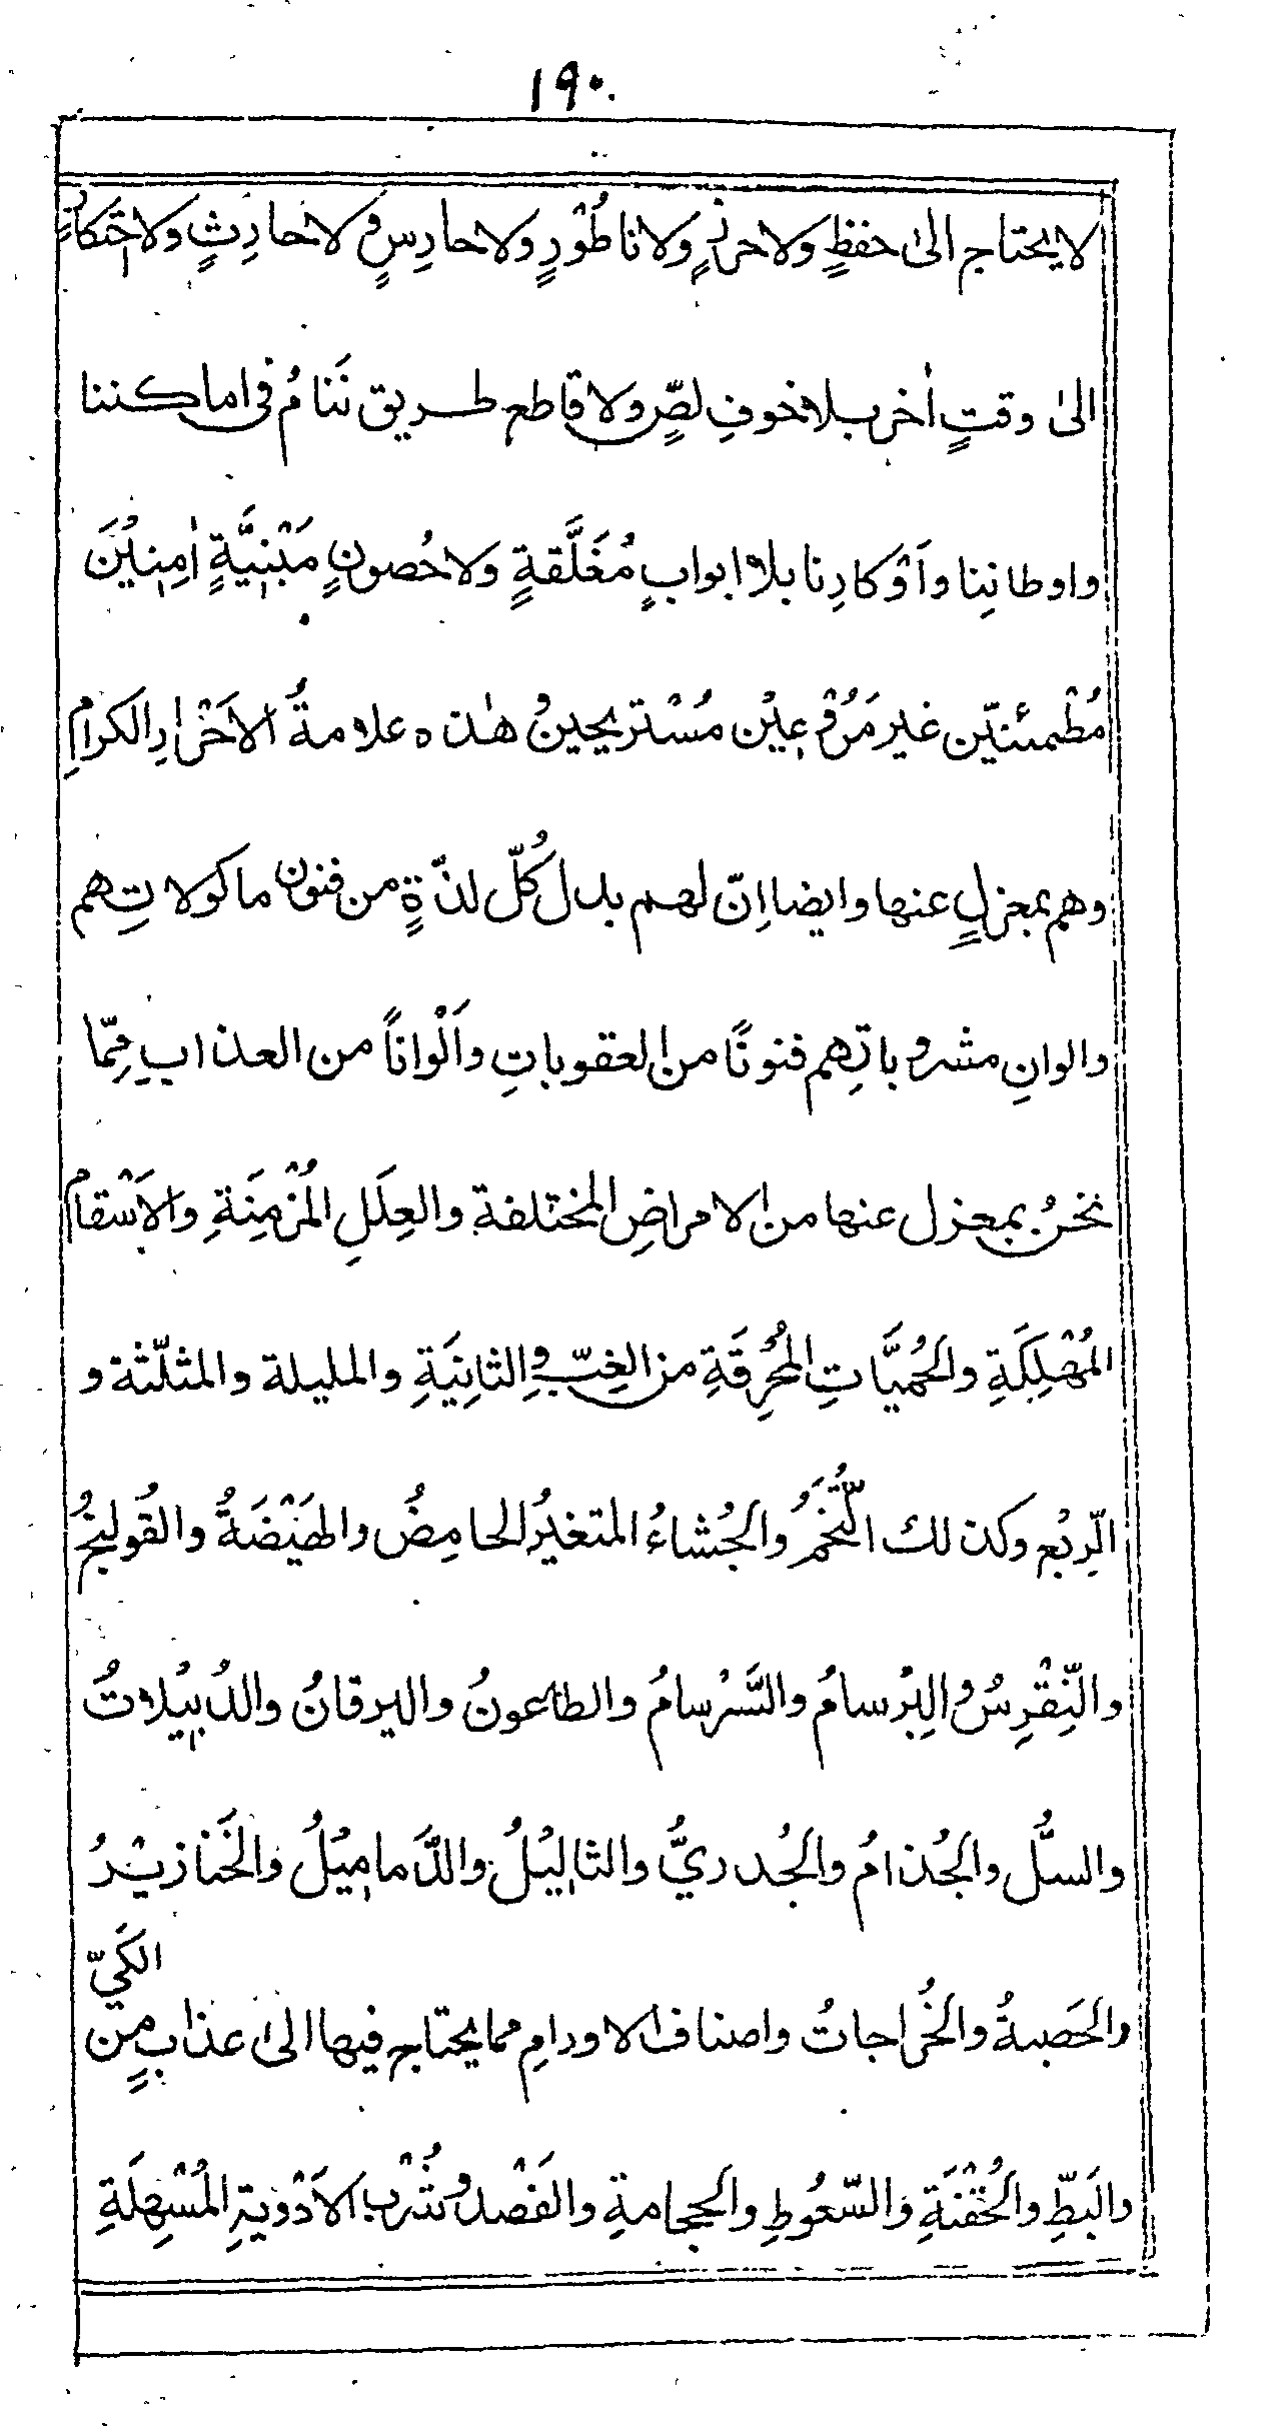 ١٩٠
لا يحتاج الىٰ حفظٍ ولا حرزٍ ولا ناطُوْرٍ ولا حارِسٍ و لا حارِثٍ ولا احتكارٍ
الىٰ وقتٍ اٰخر بلا خوفِ لصٍّ ولا قاطع طريق نَنامُ فى اماكننا
واوطانِنا واَوْكارِنا بلا ابوابٍ مُغَلَّقةٍ ولا حُصونٍ مَبْنِيَّةٍ اٰمِنِيْنَ
مُطْمئنيّن غير مَرُوْعِيْن مُسْتريحينُ هٰذه علامةُ الاَحْرارِ الكرامِ
وهم بمعزلٍ عنها وايضا اِنّ لهم بدل كُلّ لذّةٍ من فنون ماكولاتِهم
والوانِ مشروباتِهم فنونًا من العقوباتِ واَلْواناً من العذابِ مِمّا
نحنُ بمعزل عنها من الامراضِ المختلفةِ والعِلَلِ المُزْمِنَةِ والاَسْقامِ
المُهْلِكَةِ والحُمَّياتِ المُحْرِقَةِ من الغِبِّ والثانِيَةِ والمليلة والمثلّثة و
الرِّبْع وكذلك التُّخَمُ والجُشاءُ المتغيرُ الحامِضُ والهَيْضَةُ والقُولنجُ
والنِّقْرِسُ والبِرْسامُ والسَّرْسامُ والطاعونُ واليرقانُ والدُبيْلاتُ
والسلُّ والجُذامُ والجُدريُّ والثاليْلُ والدَّماميْلُ والخَنازيْرُ
والحَصبةُ والخُراجاتُ واصناف الاورامِ مما يحتاج فيها الىٰ عذابٍ من الكَيّ
والبَطِّ والحُقْنَةِ والسّعُوطِ والحجامةِ والفَصْدِ وشُرْبِ الاَدْويةِ المُسْهِلَةِ